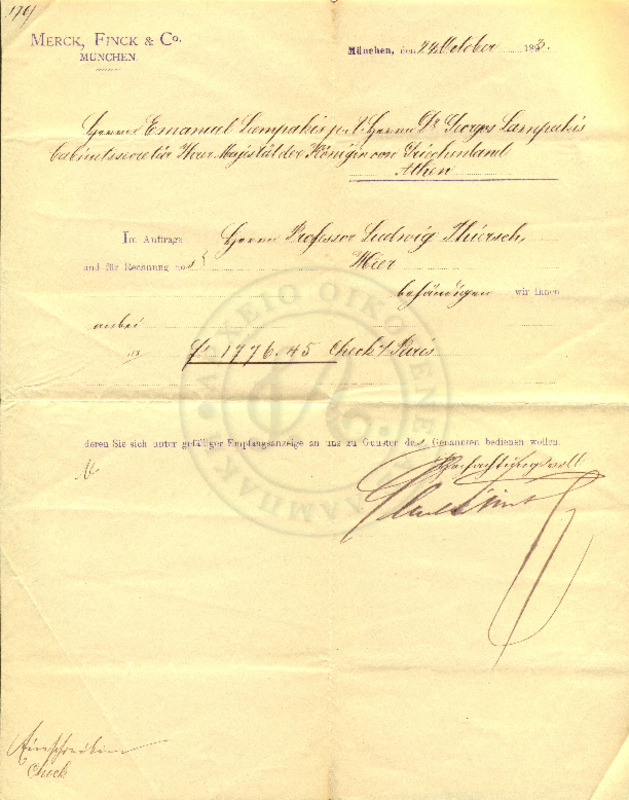 176
MERCK, FINCK & Co.
MÜNCHEN.
München, den 24 October 1893.
Herrn Emanuel Lampakis p. Ad. Herrn Dr Georges Lampakis
Cabinetssecretär Ihrer Majestät der Königin von Griechenland
Athen
Im Auftrage Herrn Professor Ludwig Thiersch,
und für Rechnung von Hier
behändigen wir Ihnen
anbei
frs 1776.45 Check s/ Paris
deren Sie sich unter gefälliger Empfangsanzeige an uns zu Gunsten des Genannten bedienen wollen.
Hochachtungsvoll
Merck Finck
Einschreiben
Check
ΑΡΧΕΙΟ ΟΙΚΟΓΕΝΕΙΑΣ ΛΑΜΠΑΚΗ